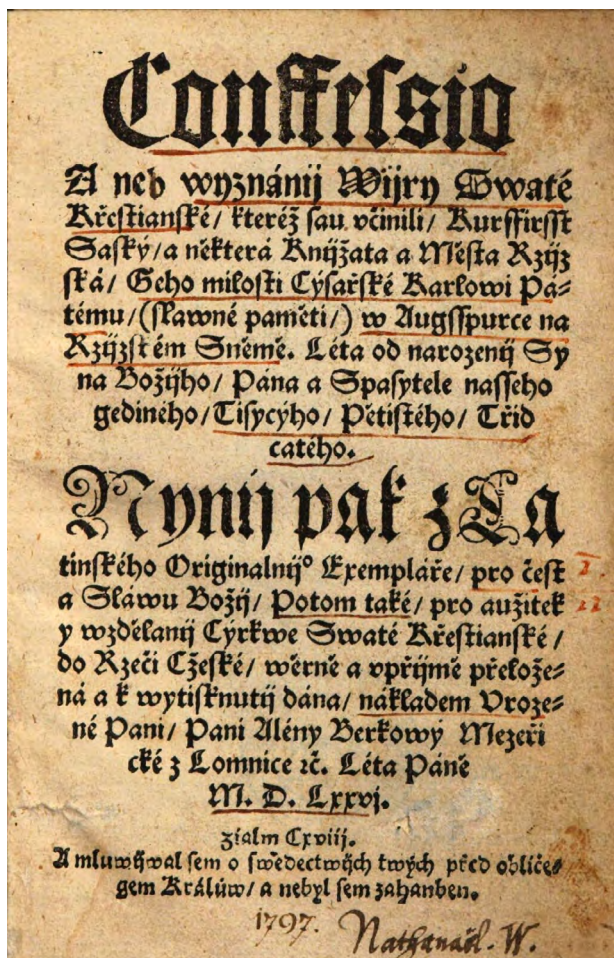 Conffessio
A neb wyznánij Wijry Swaté
Křestianské/ kteréž sau včinili/ Kurffirsst
Saský/ a některá Knijžata a Města Rzijz
ská/ Geho milosti Cýsařské Karlowi Pá-
tému/ (slawné paměti/) w Augsspurce na
Rzijzském Sněmě. Léta od narozenij Sy
na Božijho/ Pána a Spasytele nasseho
gediného/ Tisycýho/ Pětistého/ Třid
catého.
Nynij pak z La
tinského Originalnijº Exempláře/ pro čest
a Sláwu Božij/ Potom také/ pro aužitek
y wzdělanij Cýrkwe Swaté Křestianské/
do Rzeči Cžeské/ wěrně a vpřijmě přelože-
ná a k wytisknutij dána/ nákladem Vroze-
né Pani/ Pani Alény Berkowý Mezeři
cké z Lomnice ꝛč. Léta Páně
M. D. Lxxvj.
zialm Cxviij.
A mluwijwal sem o swědectwijch twých před obliče-
gem Králůw/ a nebyl sem zahanben.
1797.
Nathanaël. W.